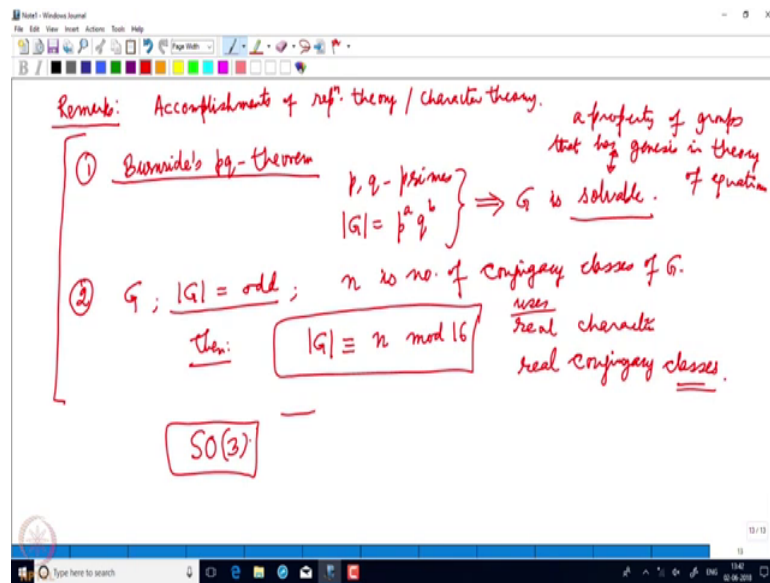 Note1 - Windows Journal
File Edit View Insert Actions Tools Help
Page Width
B I
Remarks: Accomplishments of repn. theory / character theory.
a property of groups
that has genesis in theory
of equation
① Burnside's pq-theorem
p, q - primes
|G| = p^a q^b } ⇒ G is solvable.
② G, |G| = odd ; n is no. of conjugacy classes of G.
then: |G| ≡ n mod 16
uses
real charactic
real conjugacy classes.
SO(3)
13 / 13
13
Type here to search
ENG
13:42
02-06-2018